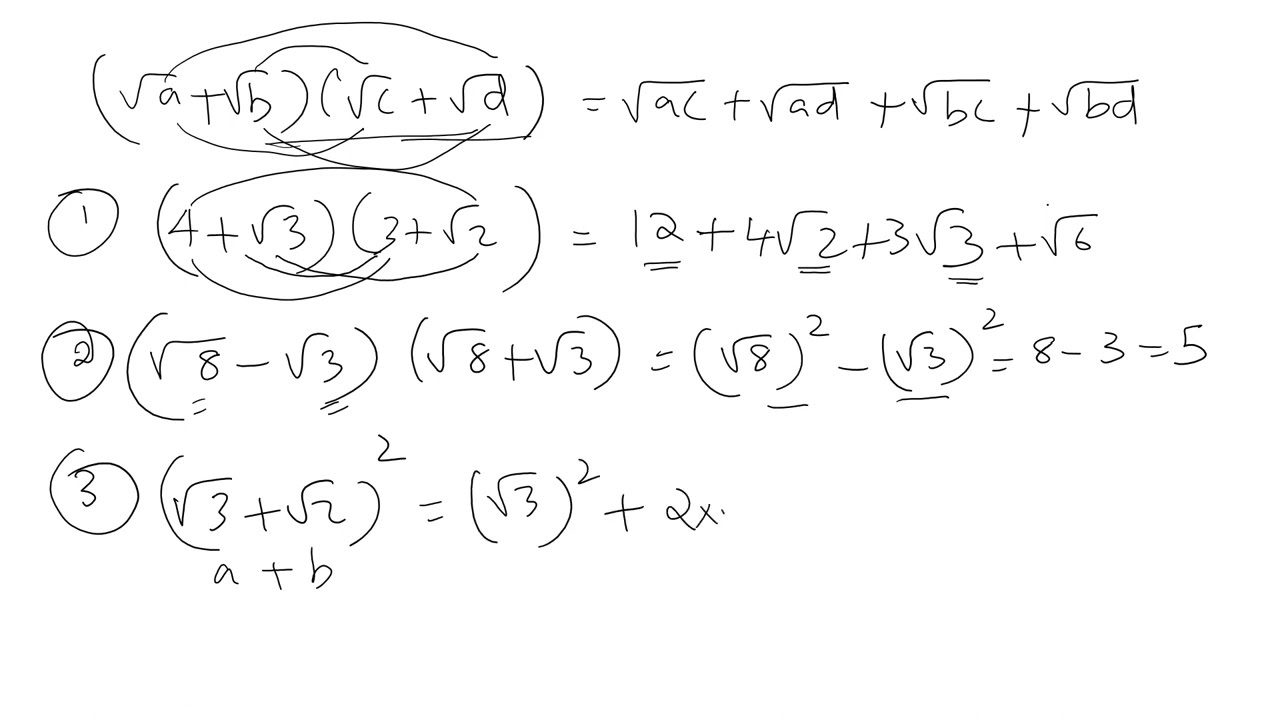 (√a + √b)(√c + √d) = √ac + √ad + √bc + √bd
① (4 + √3)(3 + √2) = 12 + 4√2 + 3√3 + √6
② (√8 − √3) (√8 + √3) = (√8)² − (√3)² = 8 − 3 = 5
③ (√3 + √2)² = (√3)² + 2×
a + b